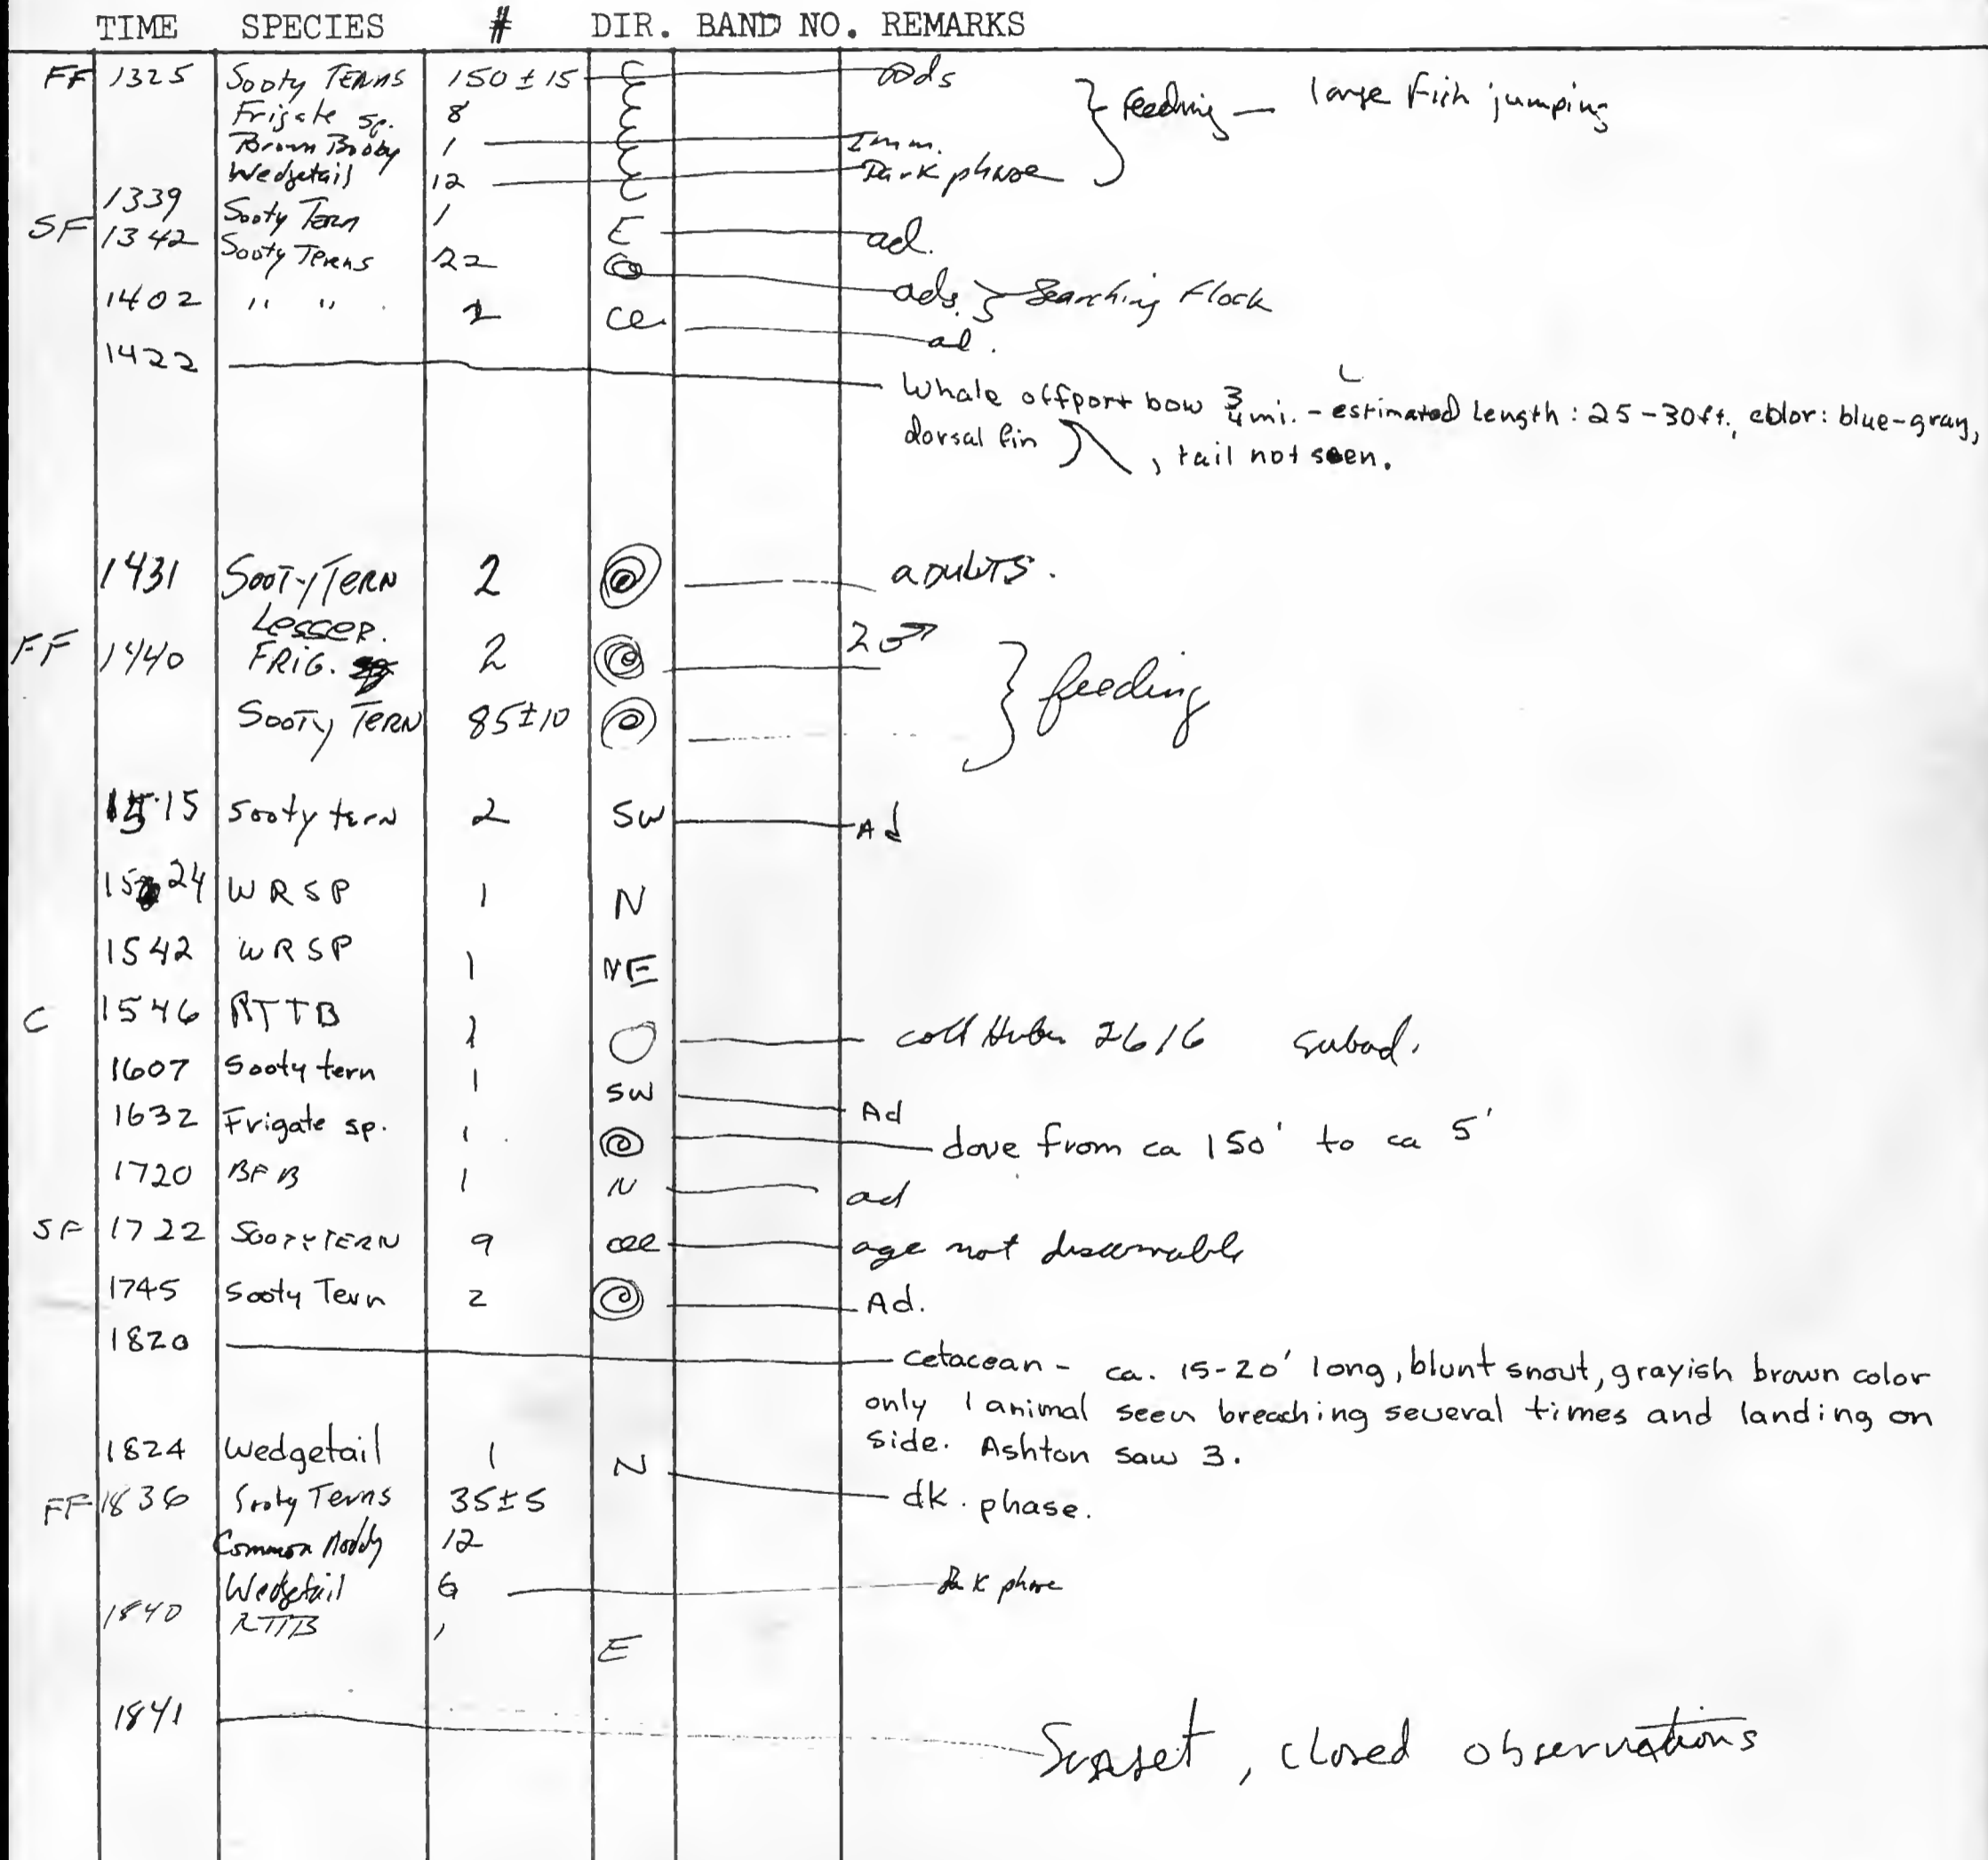 TIME SPECIES # DIR. BAND NO. REMARKS
FF 1325 Sooty Terns 150 ± 15 ads
Frigate sp. 8 } feeding — large fish jumping
Brown Booby 1 Imm.
Wedgetail 12 Dark phase
1339 Sooty Tern 1 E ad.
SF 1342 Sooty Terns 22 ads. } Searching Flock
1402 " " . 1 ad.
1422
Whale off port bow 3/4 mi. - estimated length: 25-30ft., color: blue-gray,
dorsal fin , tail not seen.
1431 Sooty Tern 2 adults.
Lesser
FF 1440 Frig. 2 2♂ } feeding
Sooty Tern 85±10
1515 Sooty tern 2 SW Ad
1524 WRSP 1 N
1542 WRSP 1 NE
C 1546 RTTB 1 coll Huber 2616 subad.
1607 Sooty tern 1 SW Ad
1632 Frigate sp. 1 dove from ca 150' to ca 5'
1720 BFB 1 N ad
SF 1722 Sooty Tern 9 age not discernable
1745 Sooty Tern 2 Ad.
1820 cetacean - ca. 15-20' long, blunt snout, grayish brown color
only 1 animal seen breaching several times and landing on
side. Ashton saw 3.
1824 Wedgetail 1 N dk. phase.
FF 1836 Sooty Terns 35±5
Common Noddy 12
Wedgetail 6 dk phase
1840 RTTB 1 E
1841 Sunset, closed observations